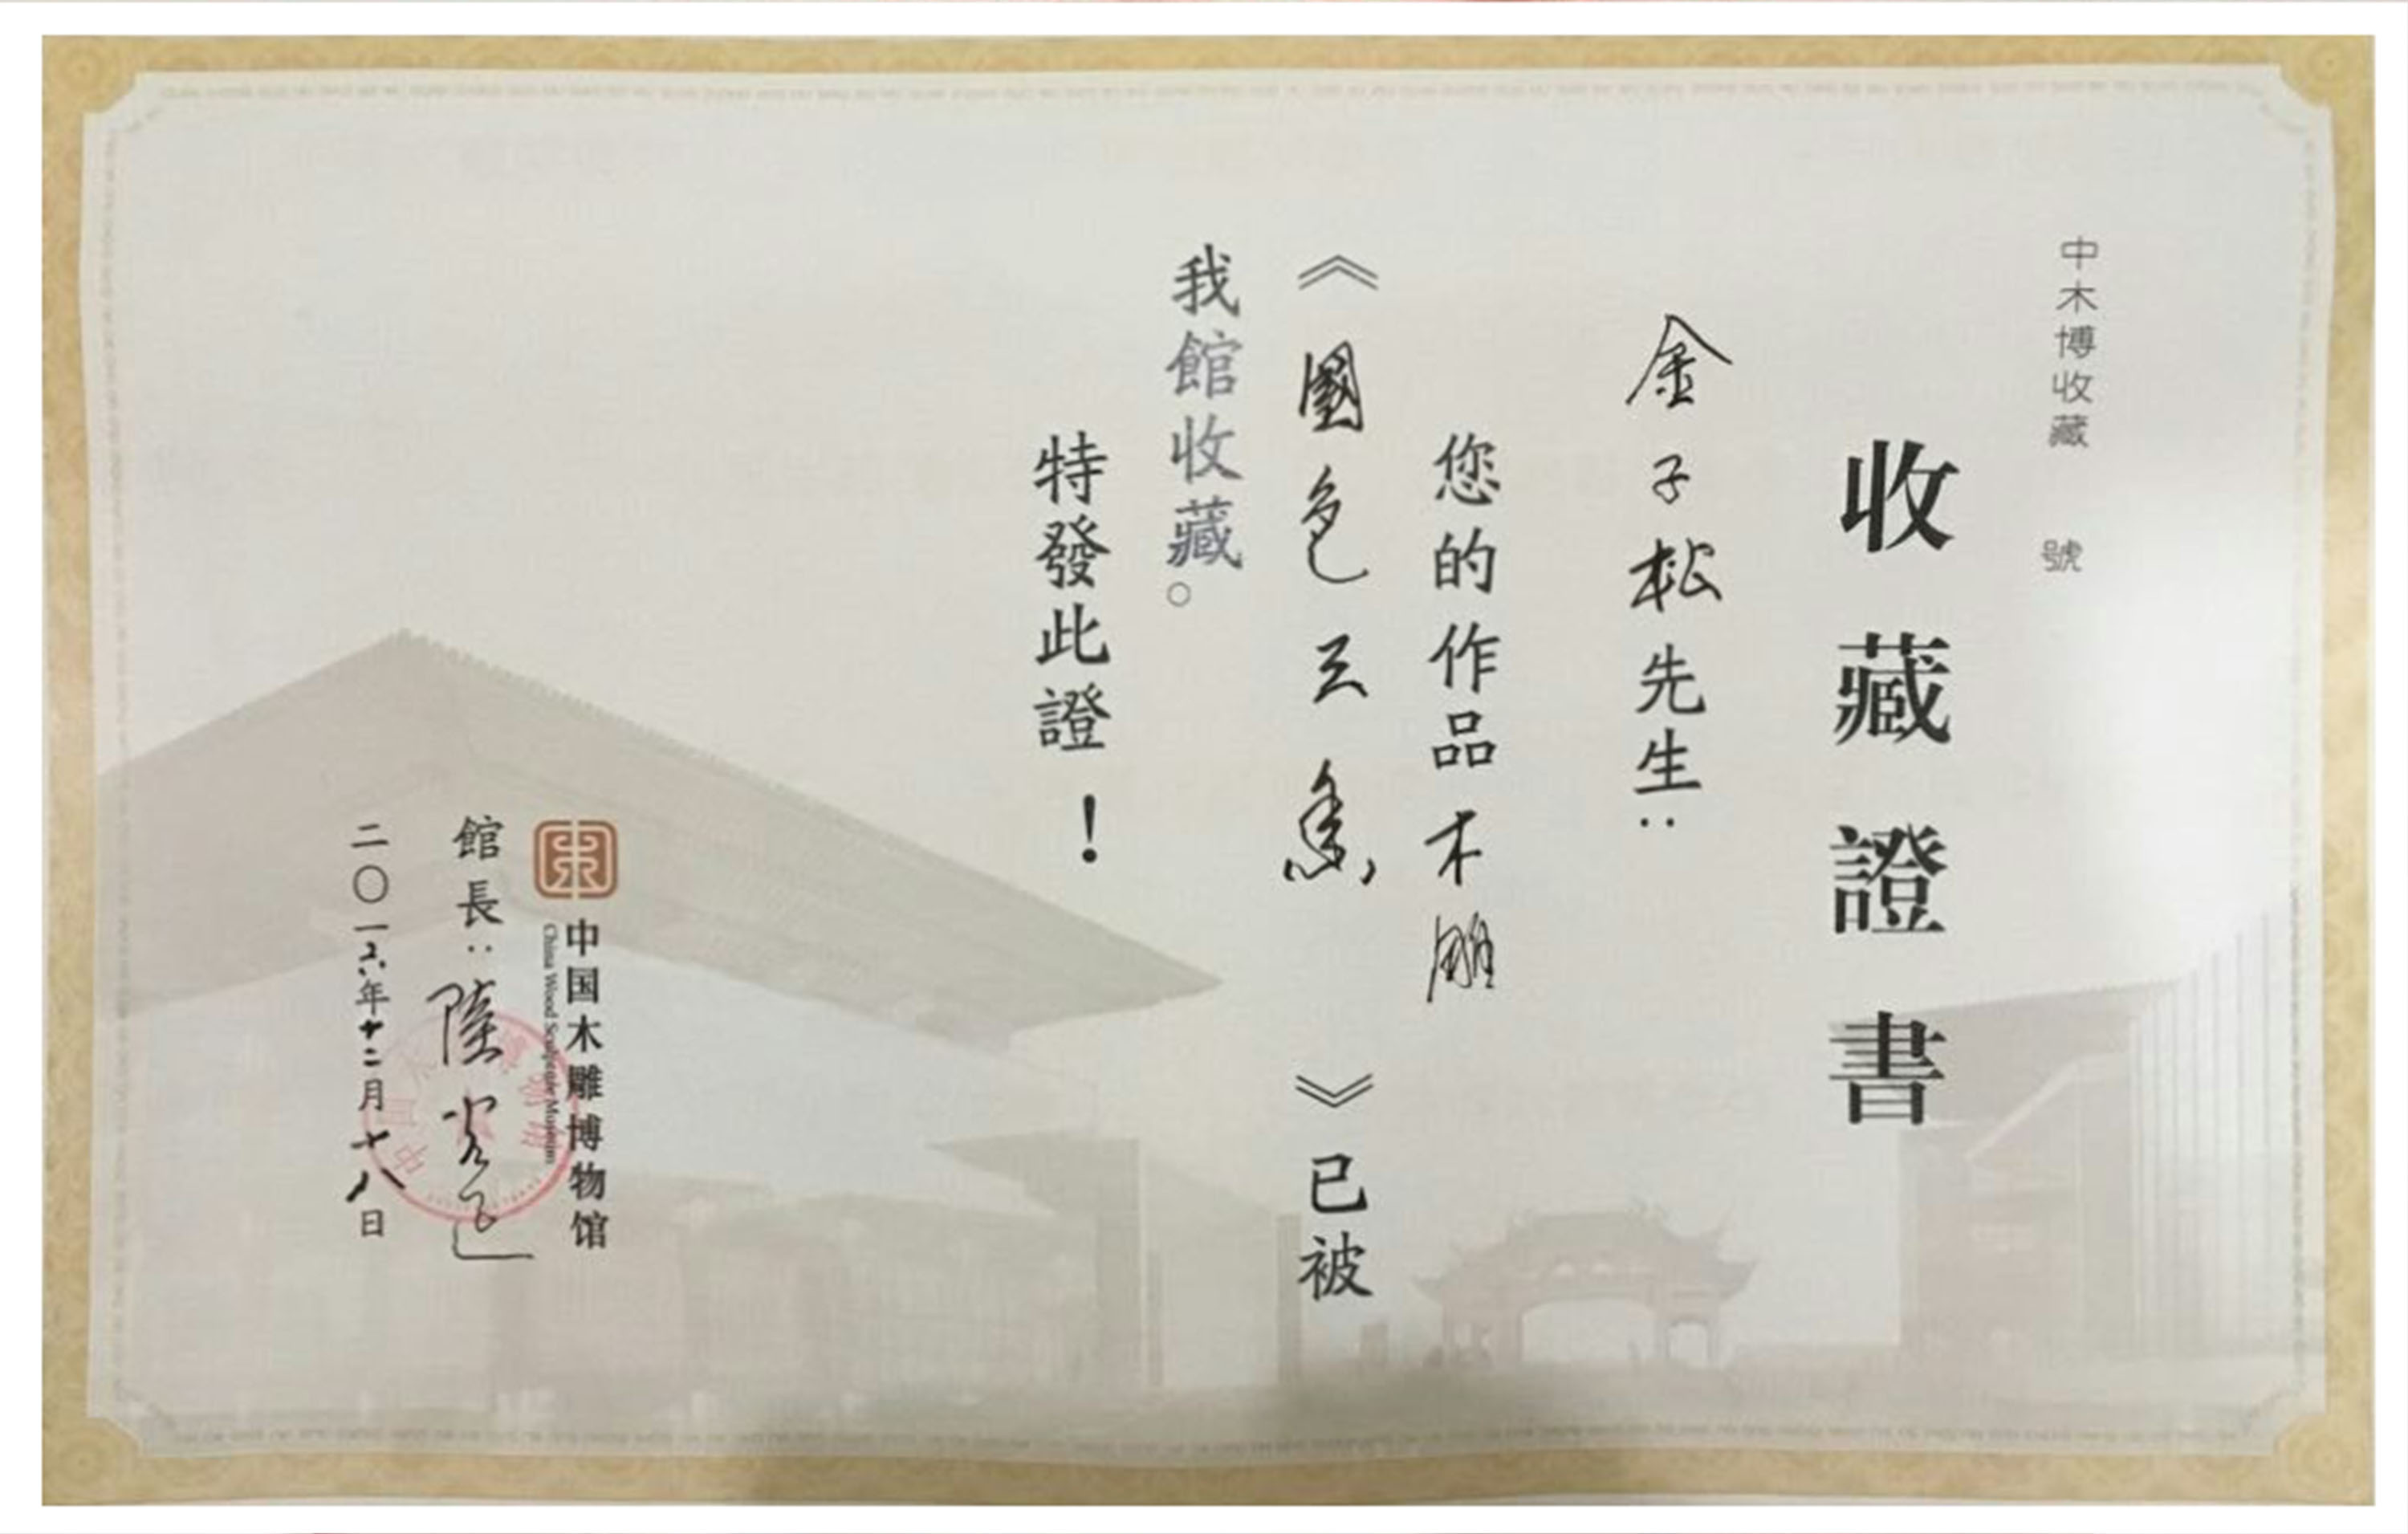 中木博收藏 號
收藏證書
金子松先生：
您的作品木雕
《國色天香》已被
我館收藏。
特發此證！
中国木雕博物馆
China Wood Sculpture Museum
館長：陸光正
二〇一六年十二月十八日